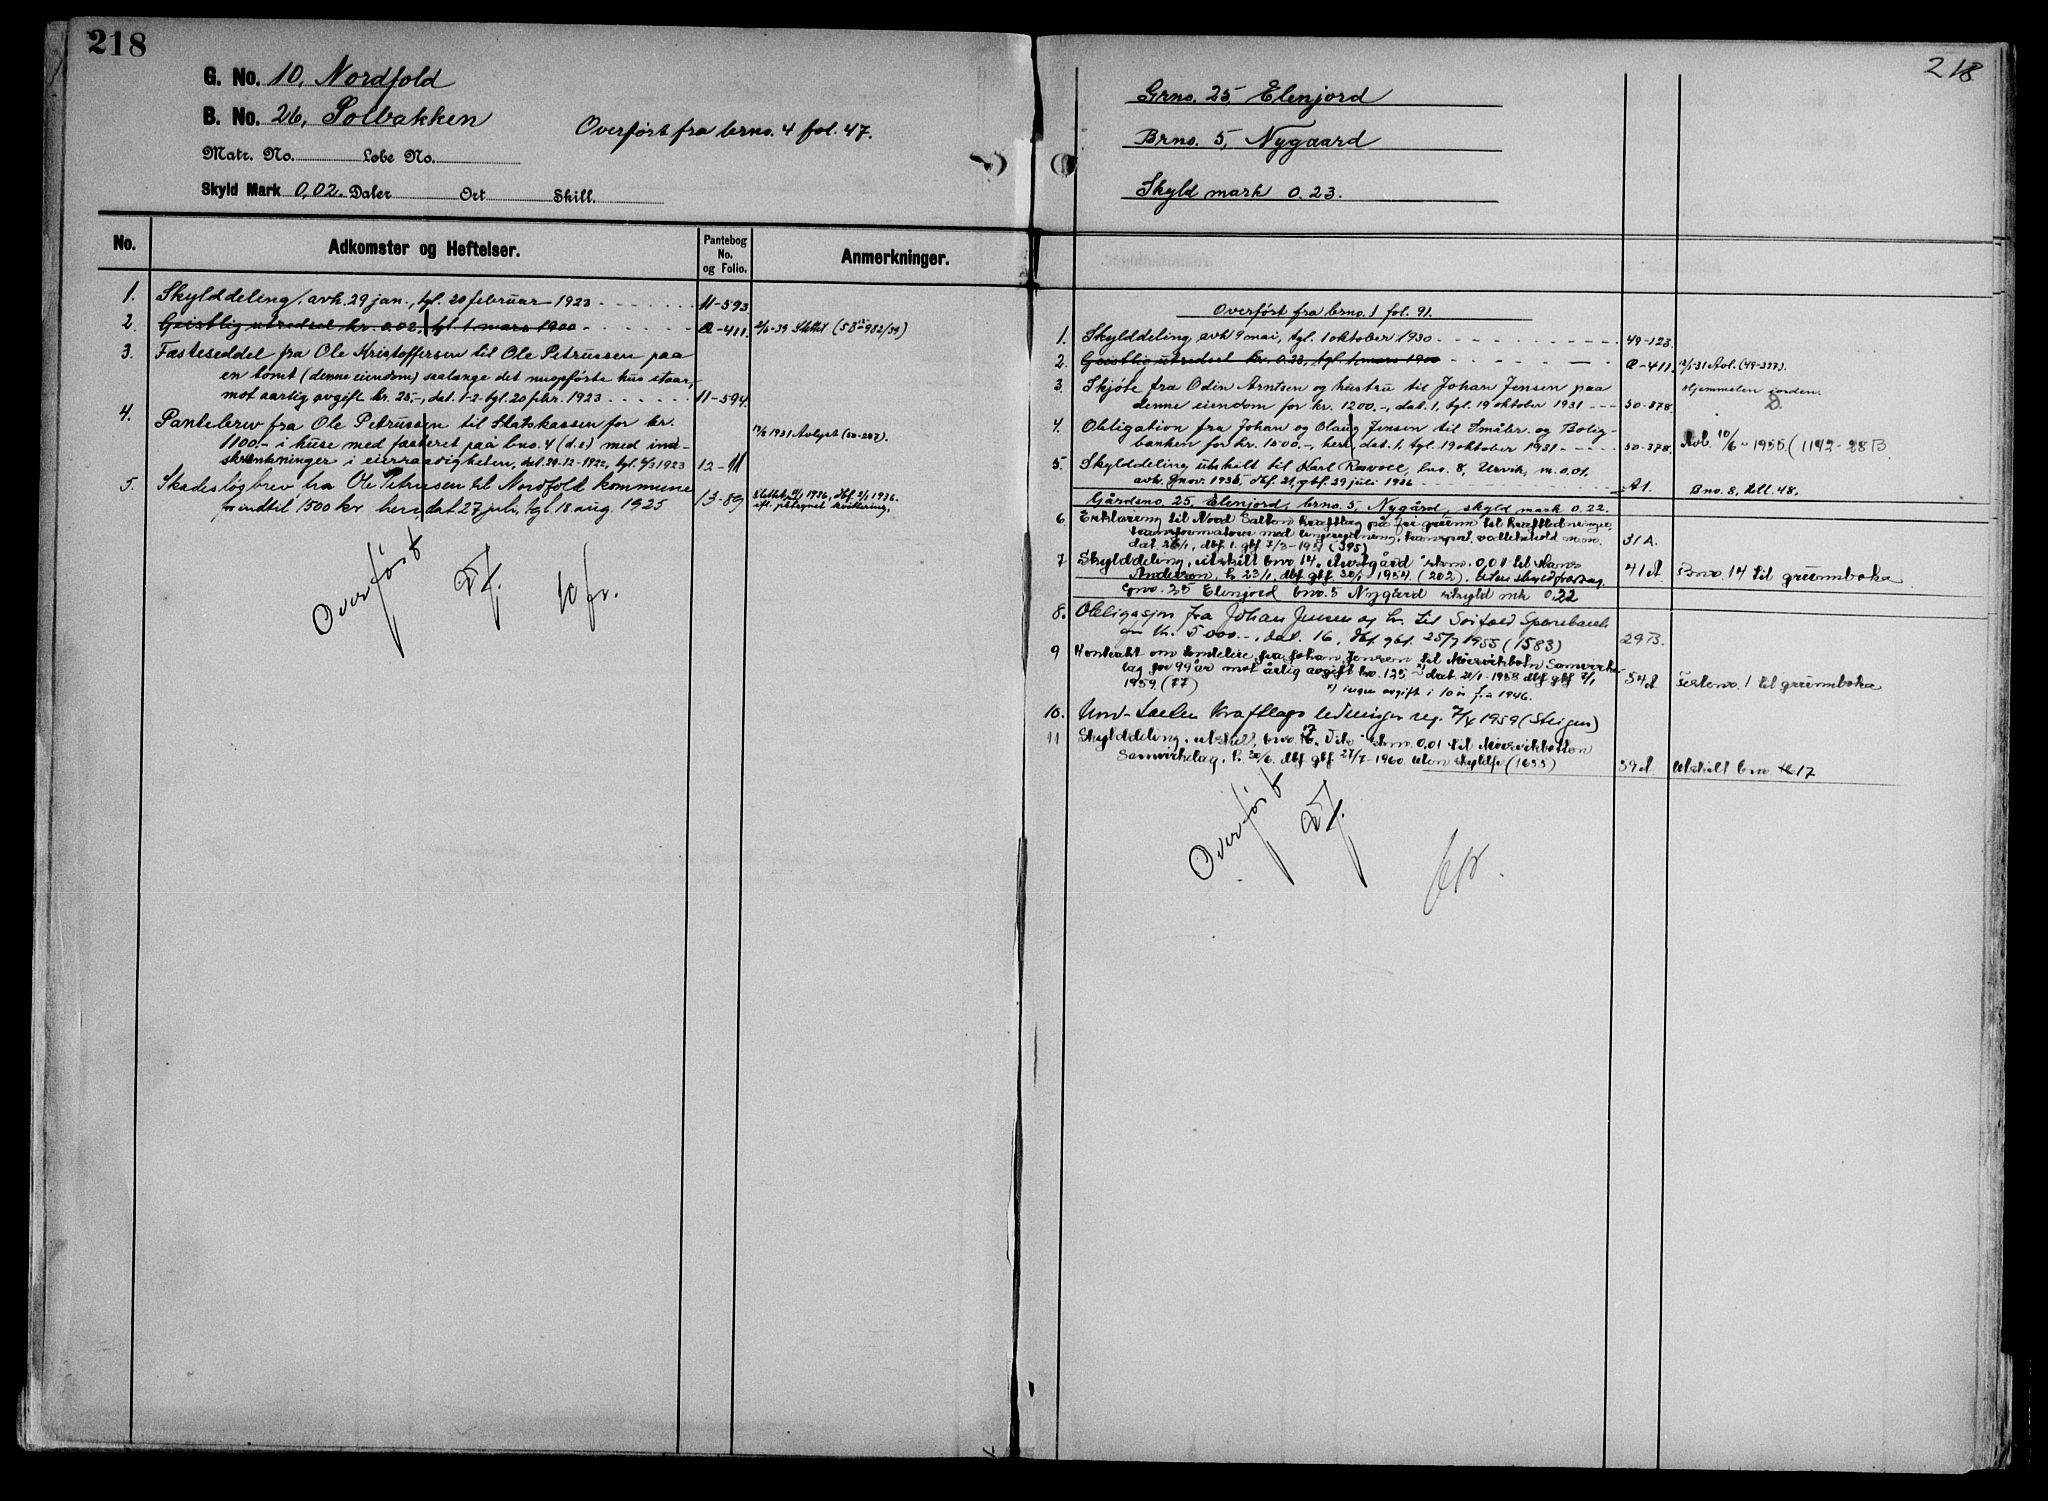 218
G. No. 10, Nordfold
B. No. 26, Solbakken
Overført fra brno. 4 fol. 47.
Matr. No. Løbe No.
Skyld Mark 0,02. Daler Ort Skill.
No. Adkomster og Heftelser. Pantebog No. og Folio. Anmerkninger.
1. Skylddeling, avh. 29 jan., tgl. 20 februar 1923 11-593
2. Geistlig utredsel kr. 0.02, tgl. 1. mars 1900 - Q-411. Slettet
3. Fæsteseddel fra Ole Kristoffersen til Ole Petrussen paa
en tomt (denne eiendom) saalænge det nuopførte hus staar,
mot aarlig avgift kr. 25.-, dat. 1-2- tgl. 20 febr. 1923 11-594.
4. Pantebrev fra Ole Petrussen til Statskassen for kr.
1100.- i huse med fæsteret paa bno. 4 (d.e) med ind-
skrænkninger i eierraadigheten, dat. 29-12-1922, tgl. 1923 12-11 1931 Avlyst (50-207).
5. Skadesløsbrev fra Ole Petrussen til Nordfold kommune
for indtil 1500 kr. heri, dat 27 juli, tgl 18 aug. 1925 13-89 Slettet 1936, dbf. 2/1 1936.
efl. påtegnet kvittering.
Overført
10 fr.
218
Grno. 25, Elenjord
Brno. 5, Nygaard
Skyld mark 0.23.
Overført fra brno. 1 fol. 91.
1. Skylddeling avh 9 mai, tgl. 1 oktober 1930 49-123.
2. Geistlig utredsel kr. 0.23, tgl. 1 mars 1900 Q-411. 31 Avl. (49-377).
3. Skjøte fra Odin Arntsen og hustru til Johan Jensen paa Hjemmelen i orden.
denne eiendom for kr. 1200.-, dat. 1, tgl. 19 oktober 1931 50-378.
4. Obligation fra Johan og Olaug Jensen til Småbr. og Bolig-
banken for kr. 1500.-, heri, dat. 1, tgl. 19 oktober 1931 50-378. Avl. 10/6-1955 (1142-28B
5. Skylddeling utskilt til Karl Røvoll, bno. 8, Urvik, m. 0,01,
avh. 9 nov. 1935, dbf. 21, gbf. 29 juli 1936 A1. Bno. 8, bll. 48.
Gårdsno. 25, Elenjord, brno. 5, Nygård, skyld mark 0.22.
6. Erklæring til Nord Salten kraftlag på fri grunn til kraftledninger,
transformatorer med tingsregdning, transport, vedlikehold m.m.
dat. 26/1, dbf. 1, gbf. 7/3-1951 (395) 31 A.
7 Skylddeling, utskilt bno 14, skm. 0,01 til Hans
Andersen, h. 23/1, dbf gbf 30/1 1954. (202). 41 A Bno. 14 til grunnboka
gno. 25 Elenjord bno. 5 Nygård skyld mk 0.22
8. Obligasjon fra Johan Jensen og h. til Sørfold Sparebank
for kr. 5000.-, dat. 16, dbf gbf. 25/7 1955 (1583) 29 B.
9 Kontrakt om tomteleie fra Johan Jensen til Mørsvikbotn Samvirke-
lag for 99 år mot årlig avgift kr. 125 x) dat. 21/1-1958 dbf gbf 7/1
1959. (77) 54 A Festeno. 1 til grunnboka
x) ingen avgift i 10 år f.o 1946.
10. Nord-Salten Kraftlags ledninger reg. 7/4 1959 (Steigen)
11 Skylddeling, utskilt bno. 17 skm. 0.01 til Mørsvikbotten
Samvirkelag, h. 30/6, dbf gbf 27/7-1960 (1655) 59 A. Utskilt bno 17
Overført